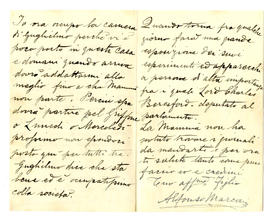 Io ora occupo la camera
di Guglielmo perchè vi è
poco posto in questa casa
e domani quando arriva
dovrà addattarsi alla
meglio fino a che Mamma
non parte. Percui spe
dovrà partire pel
Lunedì o Mercoledì
prossimo non spedire
posta qui per tutti tre
Guglielmo dice che sta
bene ed è occupatissimo
colla società
Quando torna fra qualche
giorno farà una grande
esposizione dei suoi
esperimenti ed apparecchi
a persone d'alta importanza
fra i quali Lord Charles
Beresford, deputato al
parlamento.
La Mamma non ha
potuto trovare i giornali
da mandarti e per ora
ti saluta tanto come pure
faccio io e credimi
Tuo aff. figlio
Alfonso Marconi